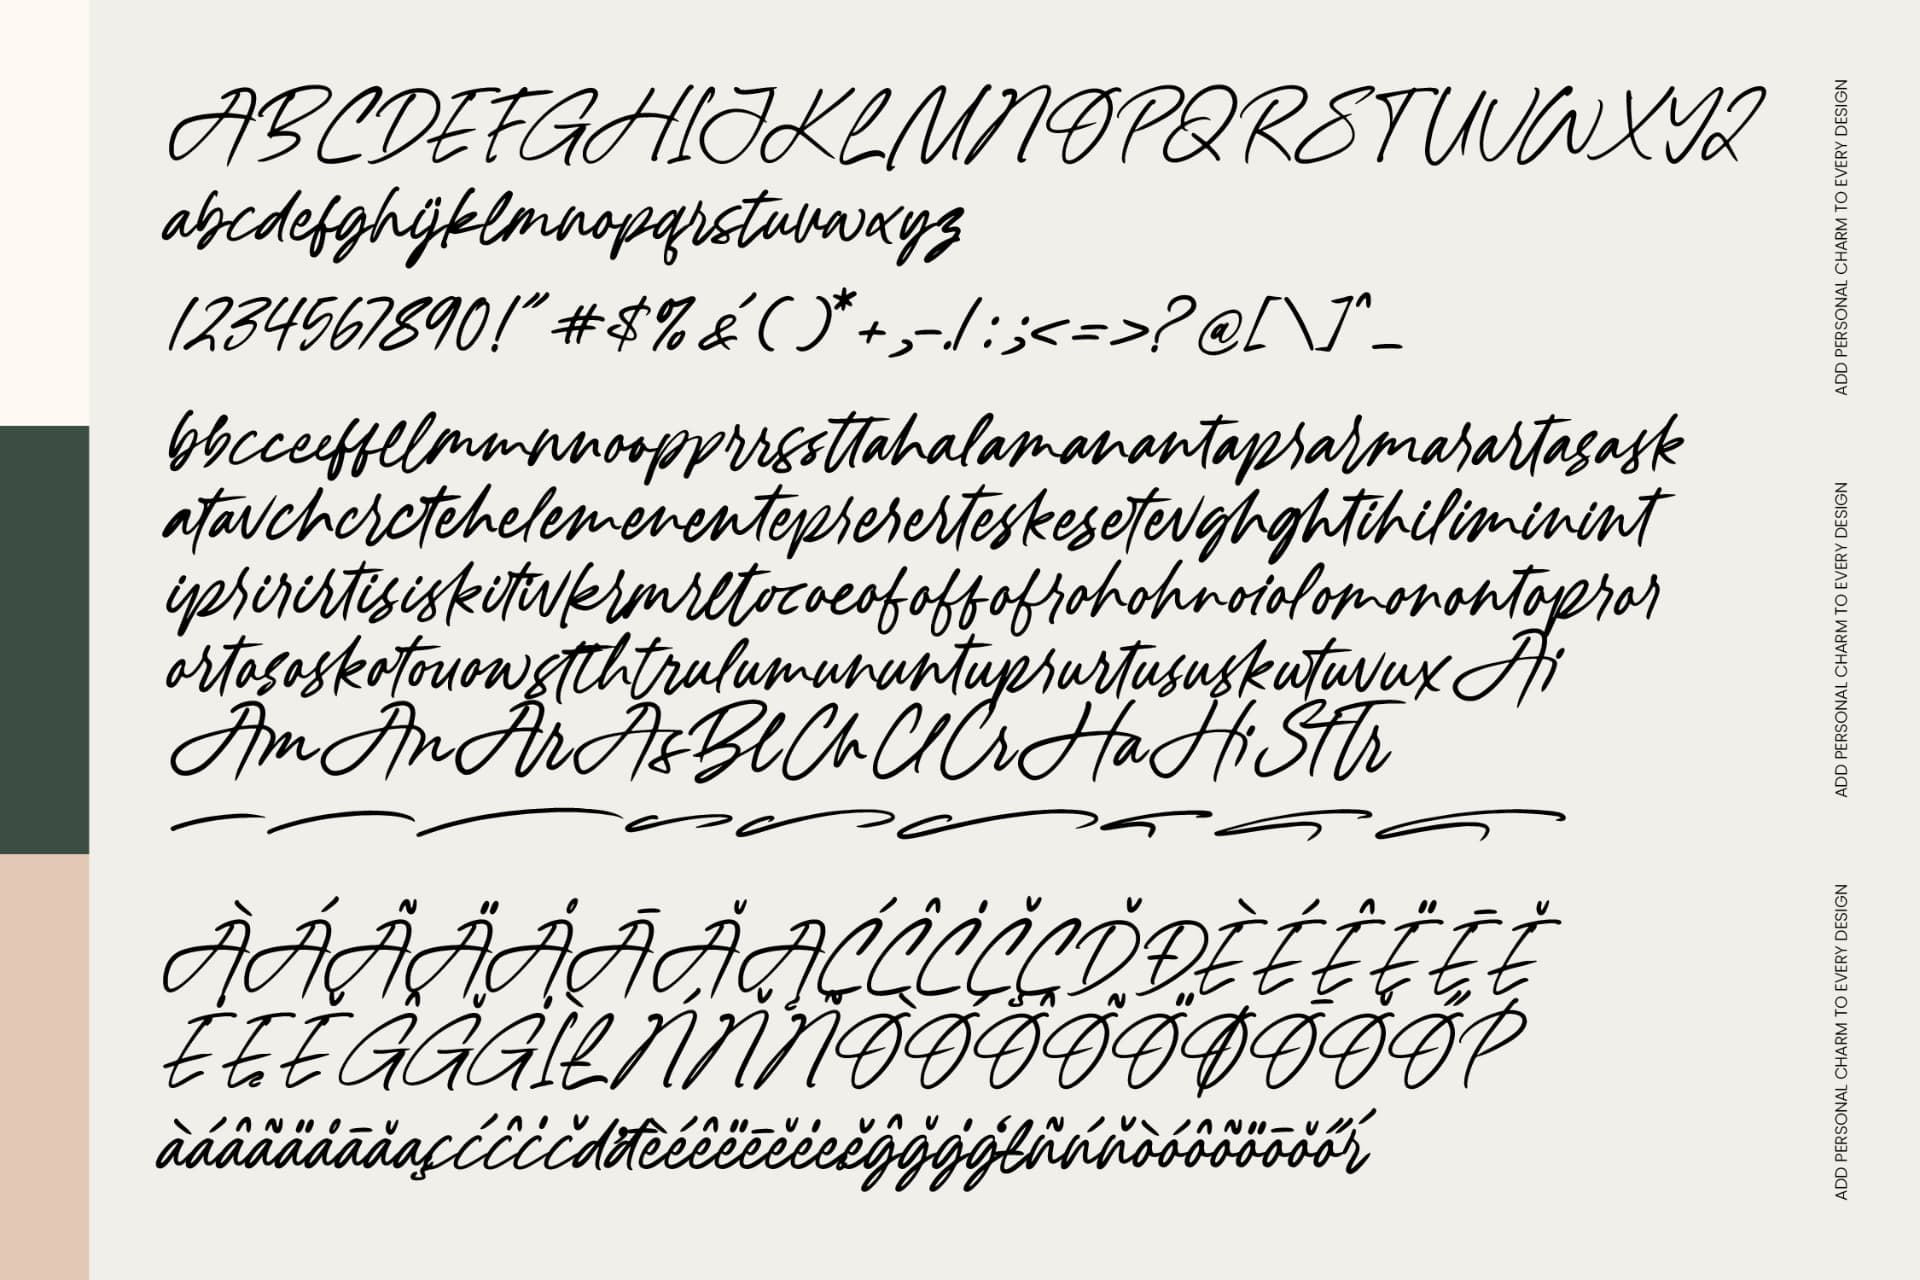 ABCDEFGHIJKLMNOPQRSTUVWXYZ
abcdefghijklmnopqrstuvwxyz
1234567890!"#$%&'()*+,-./:;<=>?@[\]^_
bbcceeffllmmnnoopprrssttahalamanantaprarmarartasask
atavchcrctehelemenenteprererteskesetevghghtihiliminint
ipriririrtisiskitivkrmrltocoeofoffofrohohnoiolomonontopror
ortososkotouowstthtrulumununtuprurtususkutuvux Ai
AmAnArAsBlChClCrHaHiStTr
ÀÁÃÄÅĀĂĄĆĈĊČÇĎĐÈÉÊËĒĔ
àáâãäåāăąçćĉċčdďđèéêëēĕėęěĝğġģłñńňòóôõöōŏőŕ
ADD PERSONAL CHARM TO EVERY DESIGN
ADD PERSONAL CHARM TO EVERY DESIGN
ADD PERSONAL CHARM TO EVERY DESIGN